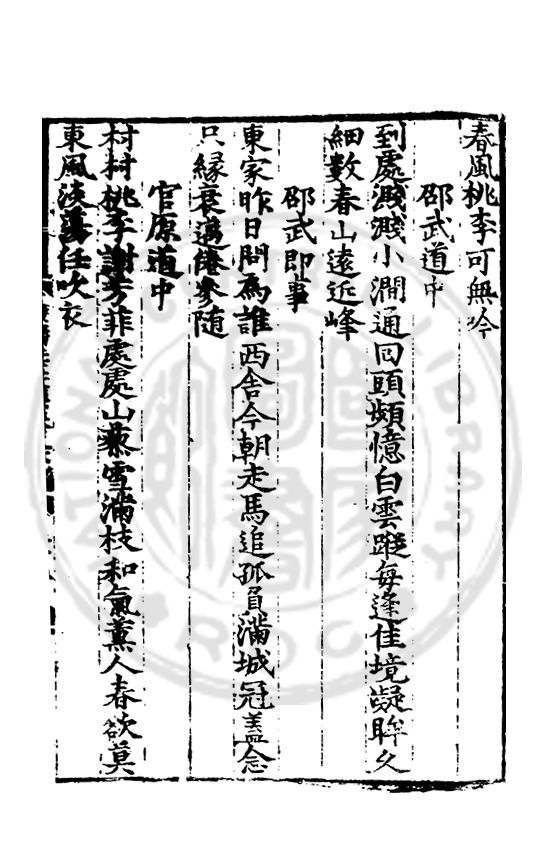 春風桃李可無吟
邵武道中
到處濺濺小澗通回頭頻憶白雲蹤每逢佳境凝眸久
細數春山遠近峰
邵武即事
東家昨日問為誰西舍今朝走馬追孤負滿城冠蓋念
只緣衰邁倦參隨
官原道中
村村桃李謝芳菲處處山礬雪滿枝和氣薰人春欲莫
東風淡蕩任吹衣